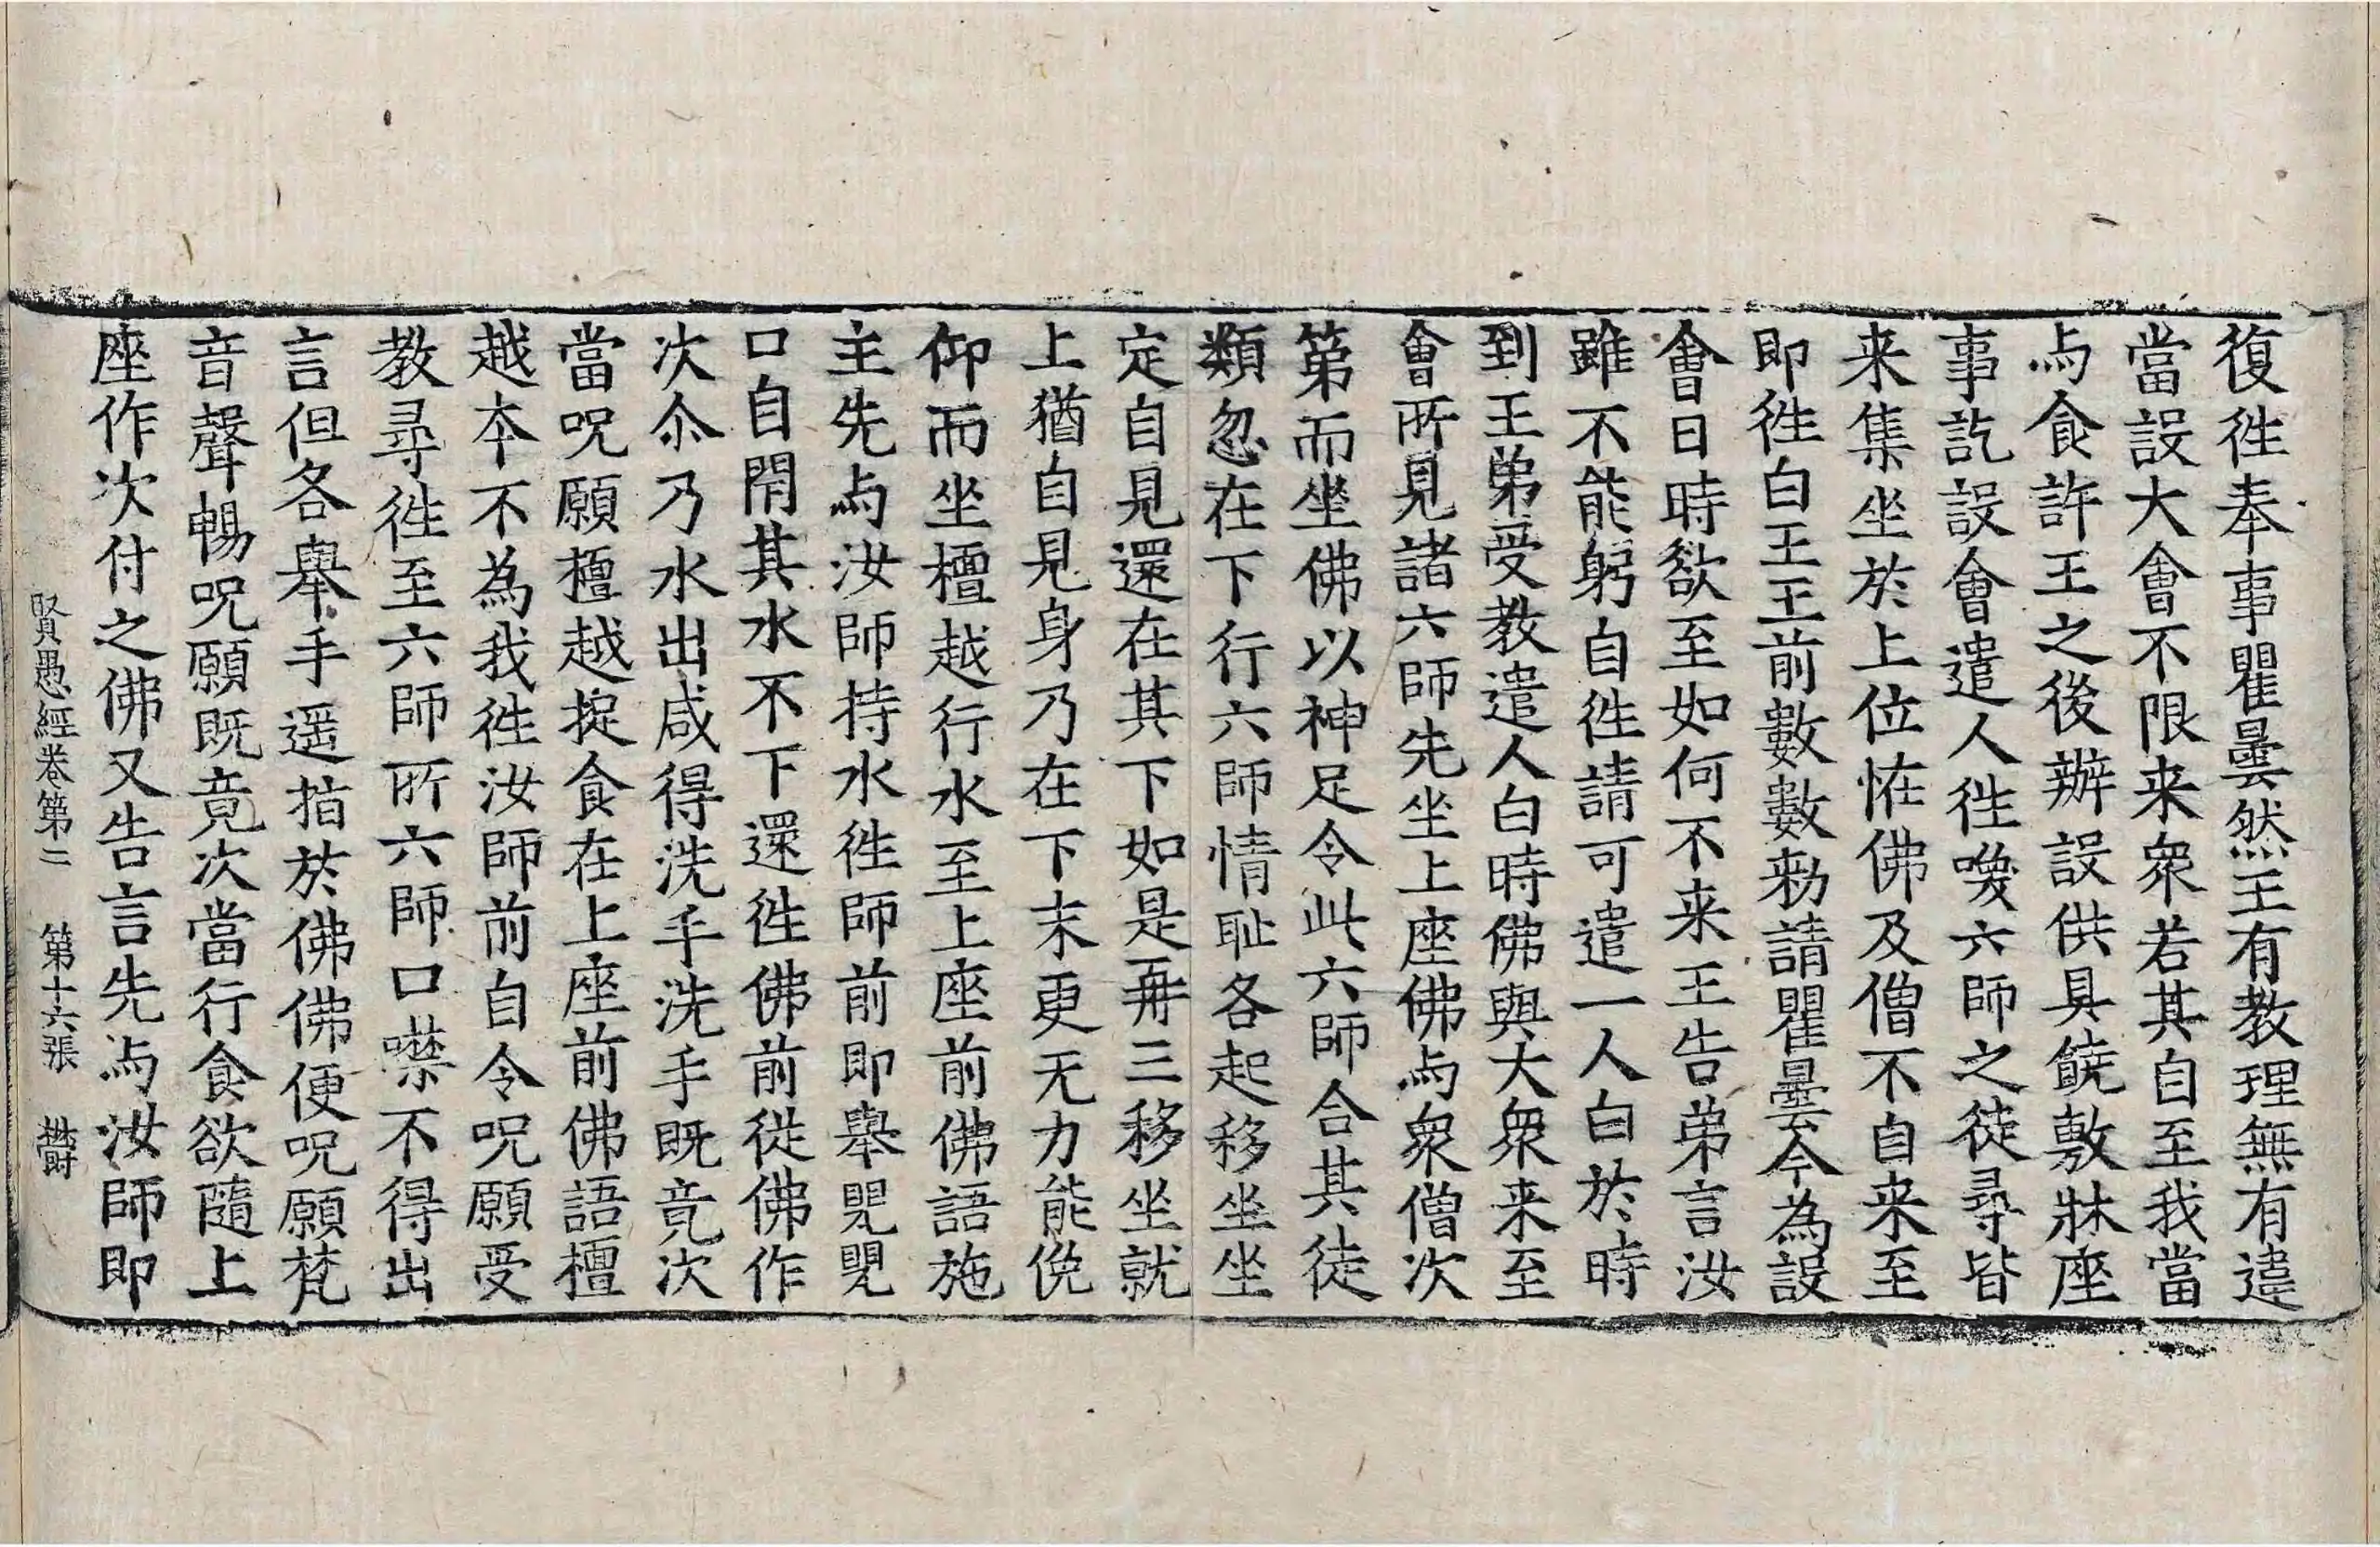 復徃奉事瞿曇然王有教理無有違
當設大會不限来衆若其自至我當
与食許王之後辦設供具饒敷牀座
事訖設會遣人徃喚六師之徒尋皆
来集坐於上位恠佛及僧不自来至
即徃白王王前數數勑請瞿曇今為設
會日時欲至如何不来王告弟言汝
雖不能躬自徃請可遣一人白於時
到王弟受教遣人白時佛與大衆来至
會所見諸六師先坐上座佛与衆僧次
第而坐佛以神足令此六師合其徒
類忽在下行六師情恥各起移坐坐
定自見還在其下如是再三移坐就
上猶自見身乃在下末更无力能俛
仰而坐檀越行水至上座前佛語施
主先与汝師持水徃師前即舉甖甖
口自閇其水不下還徃佛前從佛作
次尒乃水出咸得洗手洗手既竟次
當呪願檀越㝎食在上座前佛語檀
越夲不為我徃汝師前自令呪願受
教尋徃至六師所六師口噤不得出
言但各舉手遥指於佛佛便呪願梵
音聲暢呪願既竟次當行食欲隨上
座作次付之佛又告言先与汝師即
賢愚經卷第二 第十六張 欝